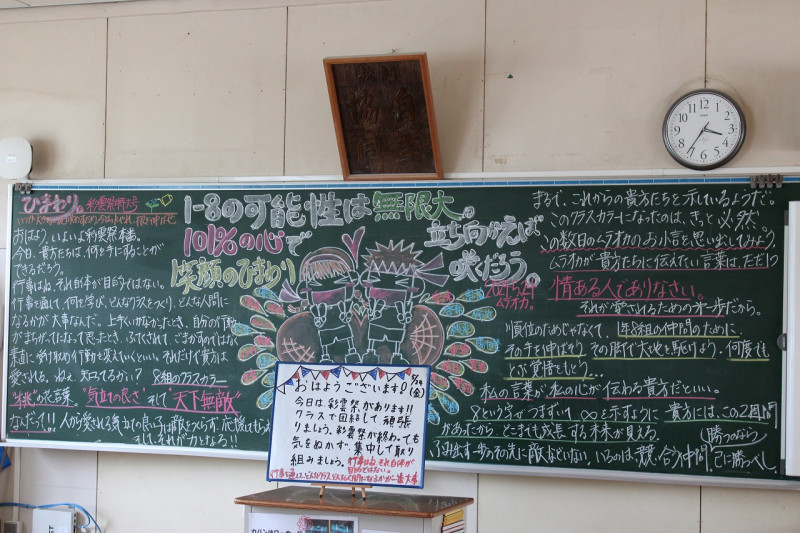 ひまわり。彩雲祭特大号
おはよう。いよいよ彩雲祭本番。
今日、貴方たちは、何を手にすることが
できるだろう。
行事はね、それ自体が目的ではない。
行事を通して、何を学び、どんなクラスをつくり、どんな人間に
なるかが大事なんだ。上手くいかなかったとき、自分の行動が
まちがっていたなって思ったとき、ふてくされて、ごまかすのではなく
素直に受け止め行動を変えていくといい。それだけで貴方は
愛される。ねぇ、知ってるかい？8組のクラスカラー
"桃"の花言葉。"気立ての良さ"そして"天下無敵"
なんだって!!
それが力となる!!
1-8の可能性は無限大。
101%の心で
立ち向かえば
笑顔のひまわり
咲くだろう。
2024.5.24
ムライカ。
まるで、これからの貴方たちを示しているようだ。
このクラスカラーになったのは、きっと必然。
この数日のムラオカのお小言を思い出してみよう。
ムラオカが貴方たちに伝えたい言葉は、ただ1つ
情ある人でありなさい。
それが愛されるための一歩だから。
順位のためじゃなくて、1年8組の仲間のために、
その手を伸ばそう。その脚で大地を駆けよう。何度も
とぶ覚悟もとう…
私の言葉が、私の心が伝わる貴方だといい。
8という字がつまずいて∞と示すように貴方には、この2週間
があったから どこまでも成長する未来が見える。
踏み出す一歩の先に敵などいない。いるのは、競い合う仲間
勝つのなら
己に勝つべし。
おはようございます♪ 5/24(金)
今日は彩雲祭があります!!
クラスで団結して頑張
りましょう。彩雲祭が終わっても
気をぬかず、集中して取り
組みましょう。
行事はね、それ自体が
目的ではない。